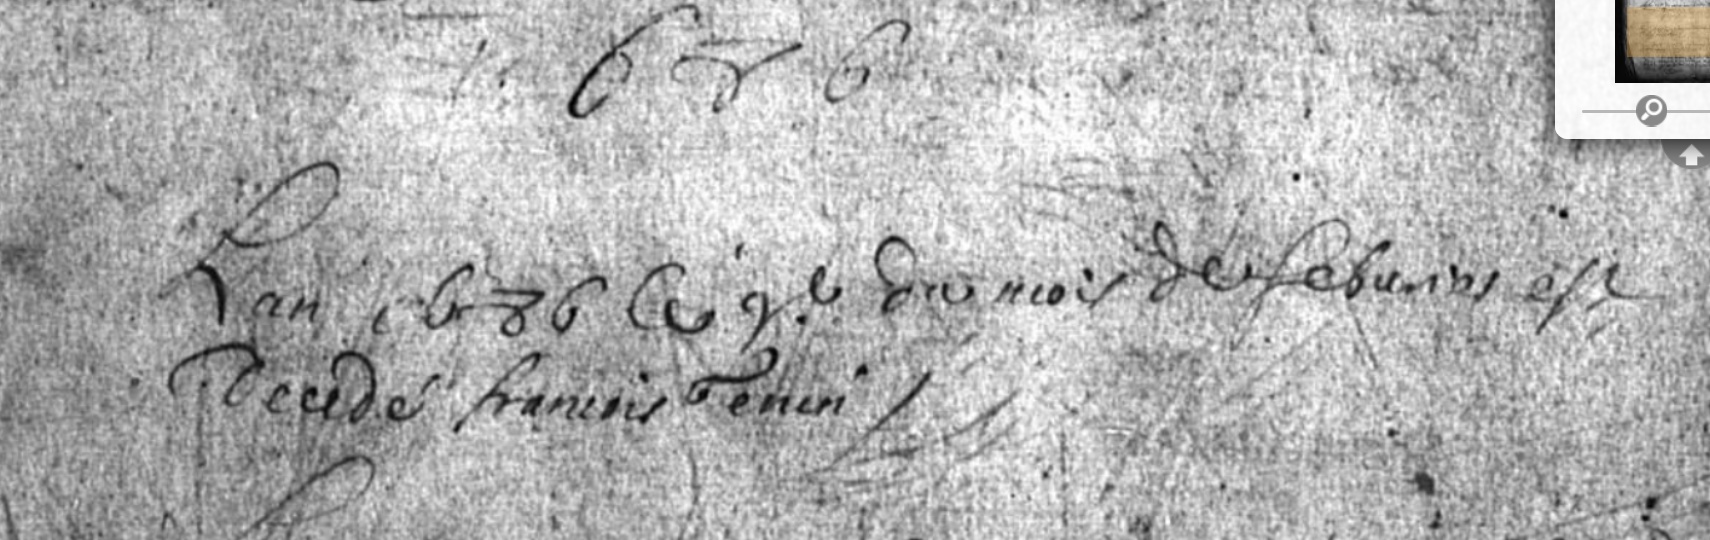 1676
Lan 1676 le 9.e du mois de febvrier est
decedé francois Tenin